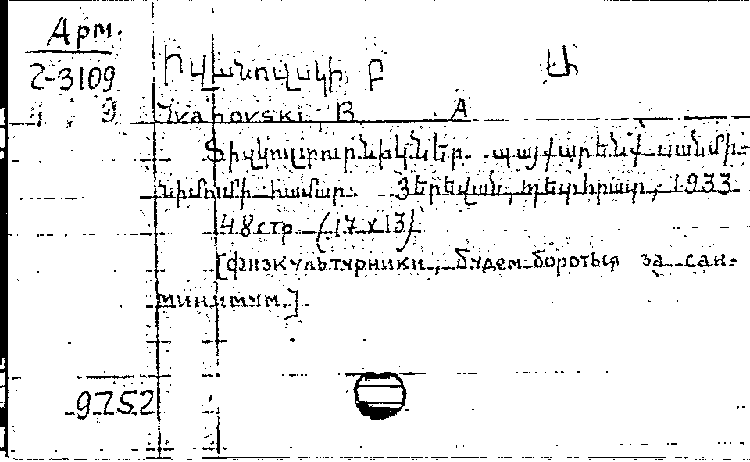 Арм.
2-3109
Իվանովսկի Բ
Ivanovski B A
Ֆիզկուլտուրնիկներ. պայքարենք սանմի-
նիմումի համար. Յերեվան, պետհրատ, 1933
48 стр (17 x 13)
[Физкультурники, будем бороться за сан-
минимум.]
9752